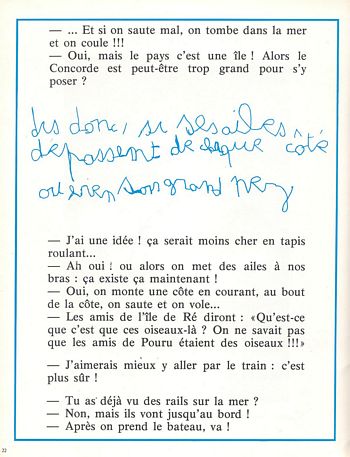 — ... Et si on saute mal, on tombe dans la mer
et on coule !!!
— Oui, mais le pays c'est une île ! Alors le
Concorde est peut-être trop grand pour s'y
poser ?
dis donc, si ses ailes
depassent de chaque côté
ou bien son grand nez
— J'ai une idée ! ça serait moins cher en tapis
roulant...
— Ah oui ! ou alors on met des ailes à nos
bras : ça existe ça maintenant !
— Oui, on monte une côte en courant, au bout
de la côte, on saute et on vole...
— Les amis de l'île de Ré diront : «Qu'est-ce
que c'est que ces oiseaux-là ? On ne savait pas
que les amis de Pouru étaient des oiseaux !!!»
— J'aimerais mieux y aller par le train : c'est
plus sûr !
— Tu as déjà vu des rails sur la mer ?
— Non, mais ils vont jusqu'au bord !
— Après on prend le bateau, va !
22